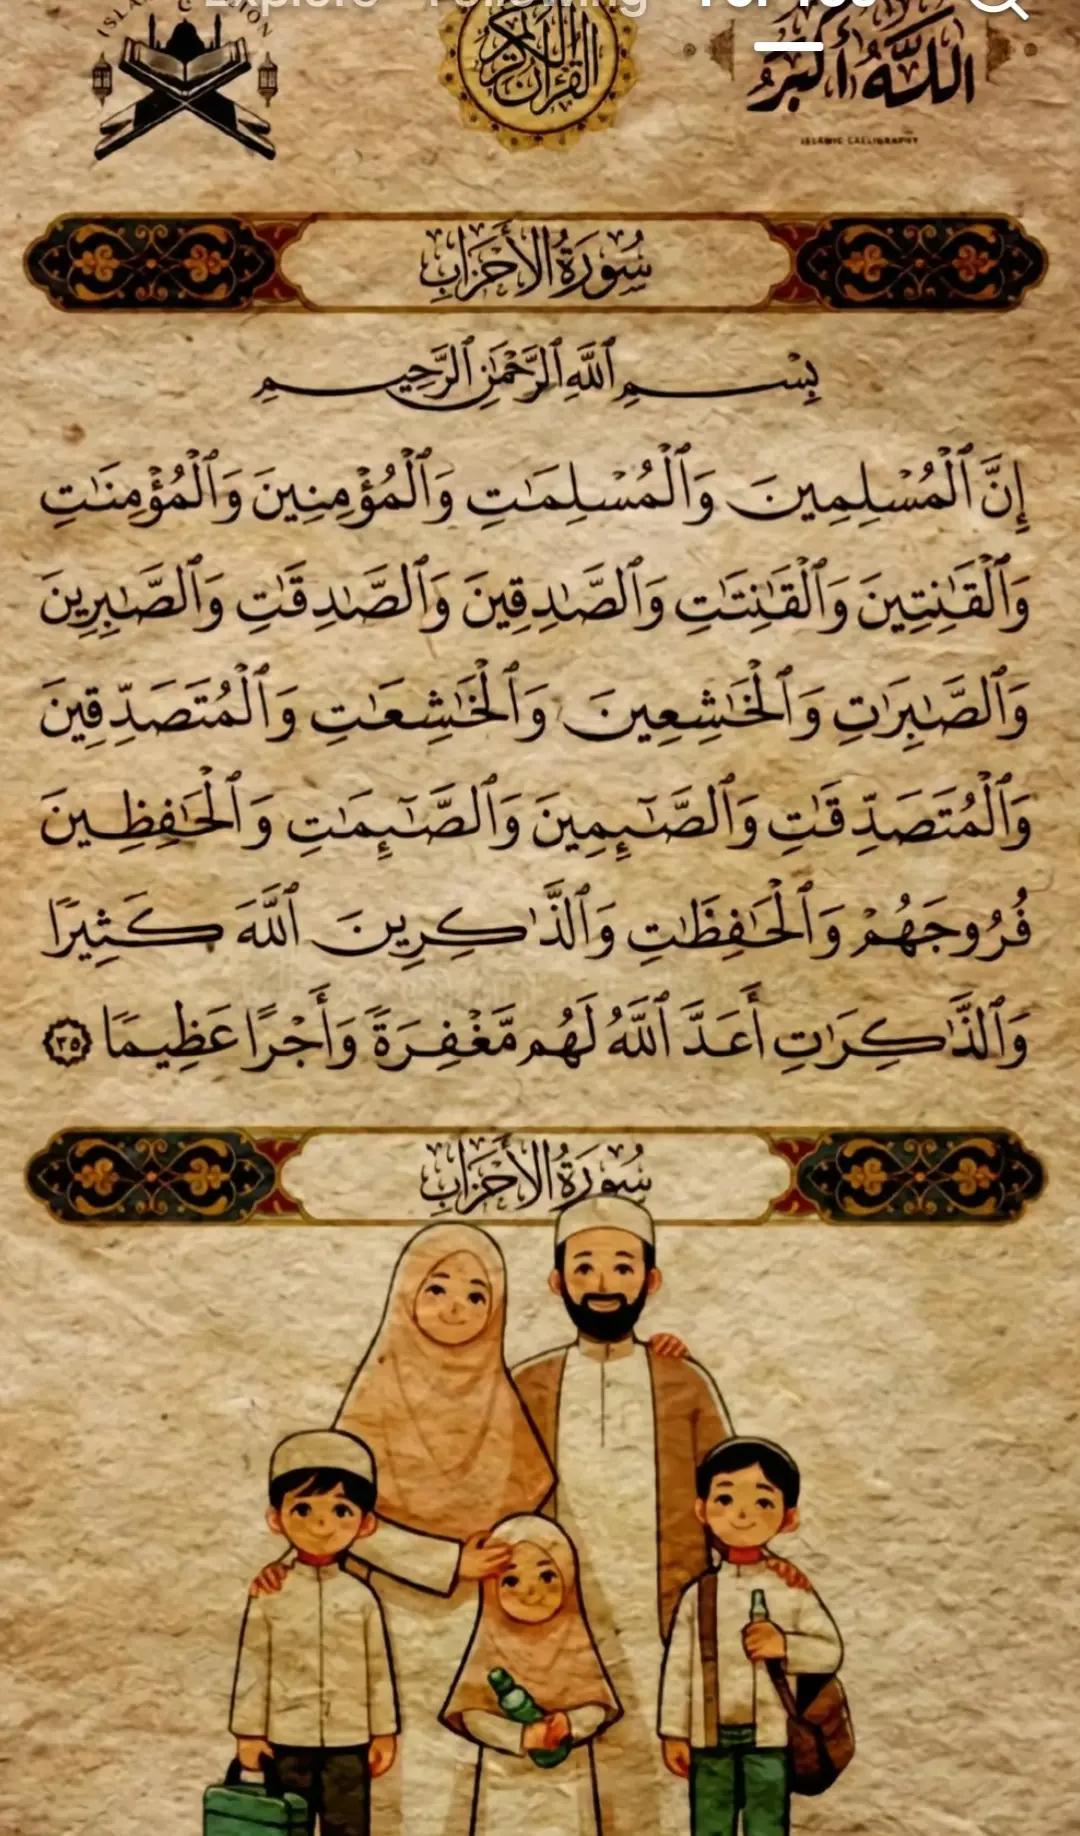 Explore Following For You
القرآن الكريم
الله أكبر
ISLAMIC CALLIGRAPHY
سُورَةُ الأَحْزَابِ
بِسْمِ ٱللَّهِ ٱلرَّحْمَٰنِ ٱلرَّحِيمِ
إِنَّ ٱلْمُسْلِمِينَ وَٱلْمُسْلِمَٰتِ وَٱلْمُؤْمِنِينَ وَٱلْمُؤْمِنَٰتِ
وَٱلْقَٰنِتِينَ وَٱلْقَٰنِتَٰتِ وَٱلصَّٰدِقِينَ وَٱلصَّٰدِقَٰتِ وَٱلصَّٰبِرِينَ
وَٱلصَّٰبِرَٰتِ وَٱلْخَٰشِعِينَ وَٱلْخَٰشِعَٰتِ وَٱلْمُتَصَدِّقِينَ
وَٱلْمُتَصَدِّقَٰتِ وَٱلصَّٰٓئِمِينَ وَٱلصَّٰٓئِمَٰتِ وَٱلْحَٰفِظِينَ
فُرُوجَهُمْ وَٱلْحَٰفِظَٰتِ وَٱلذَّٰكِرِينَ ٱللَّهَ كَثِيرًا
وَٱلذَّٰكِرَٰتِ أَعَدَّ ٱللَّهُ لَهُم مَّغْفِرَةً وَأَجْرًا عَظِيمًا ٣٥
سُورَةُ الأَحْزَابِ